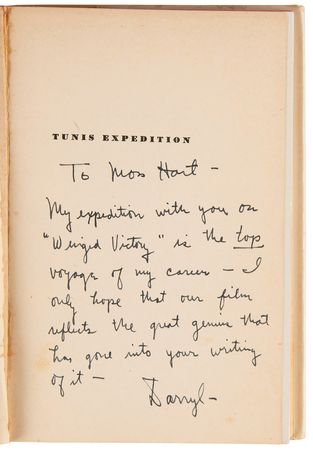 TUNIS EXPEDITION
To Moss Hart —
My expedition with you on
"Winged Victory" is the top
voyage of my career — I
only hope that our film
reflects the great genius that
has gone into your writing
of it —
Darryl —